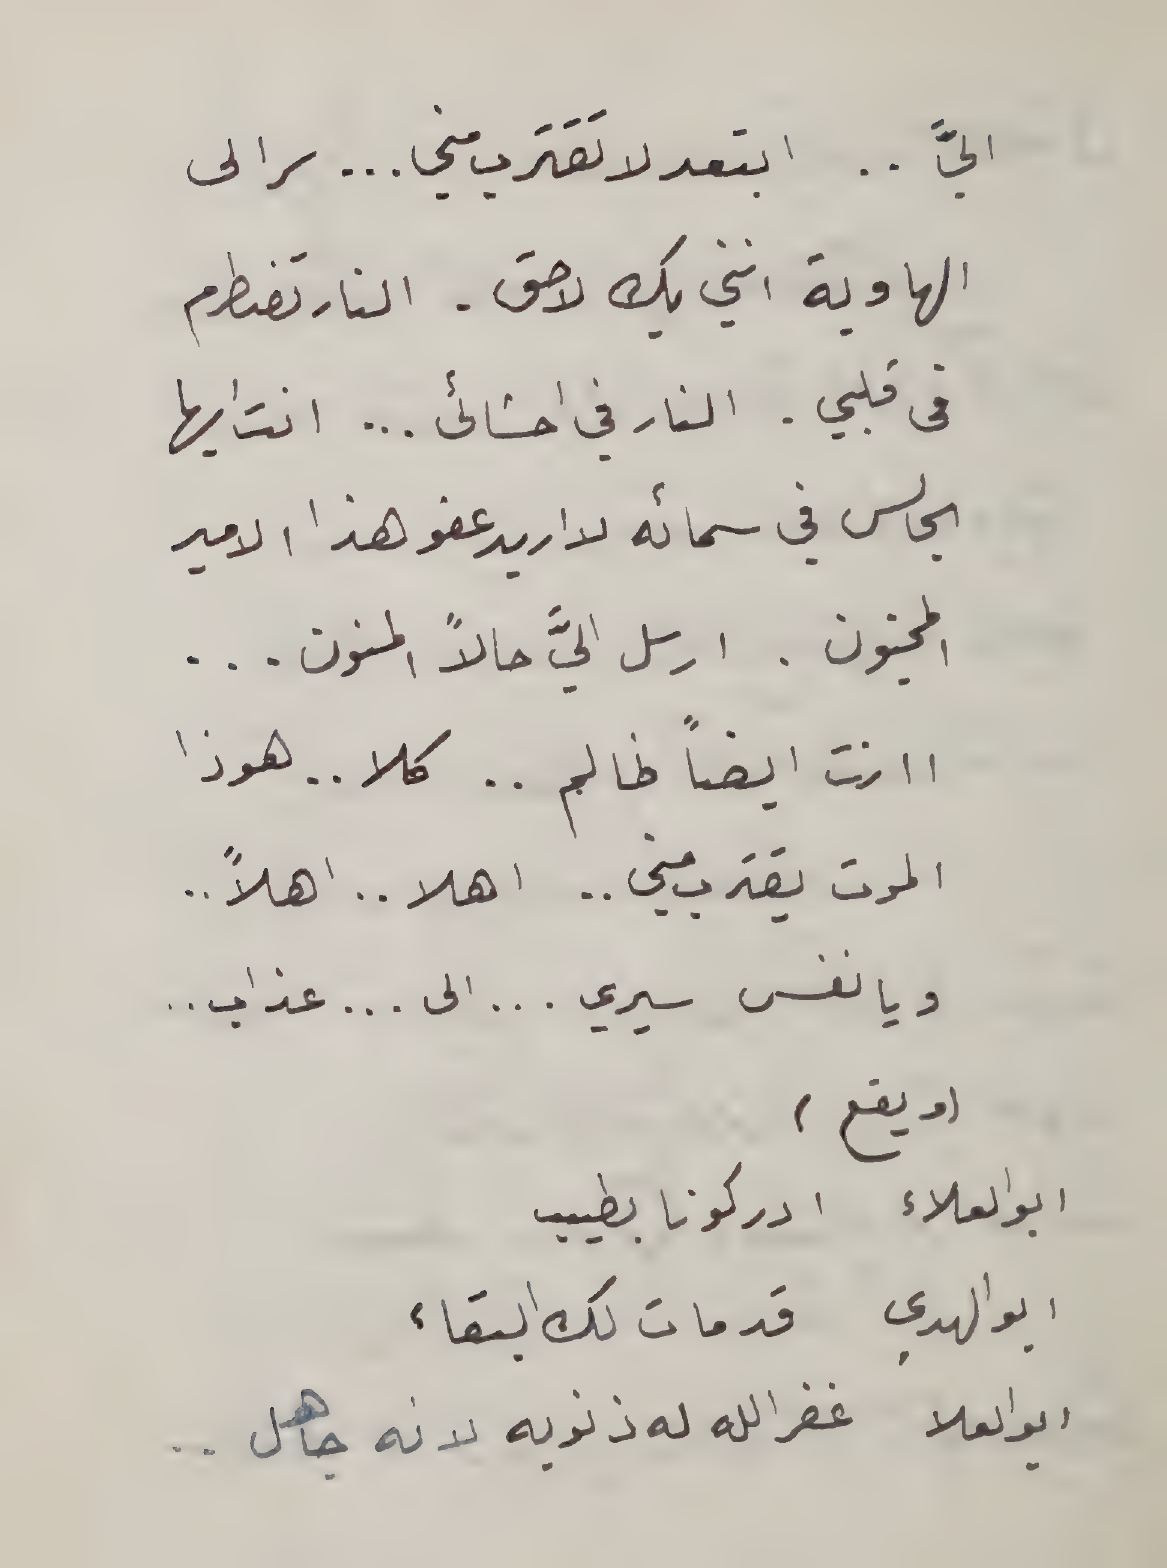 اليَّ .. ابتعد لا تقترب مني ... سر الى
الهاوية انني بك لاحق . النار تضطرم
في قلبي . النار في احشائى ... انت ايها
الجالس في سمائه لا اريد عفو هذا الامير
المجنون . ارسل اليَّ حالاً المنون ...
اانت ايضاً ظالم .. كلا .. هوذا
الموت يقترب مني .. اهلا .. اهلاً ..
ويا نفس سيري ... الى ... عذاب ..
(ويقع)
ابو العلاء ادركونا بطبيب
ابو الهدي قد مات لك البقاء
ابو العلا غفر الله له ذنوبه لانه جاهل ..